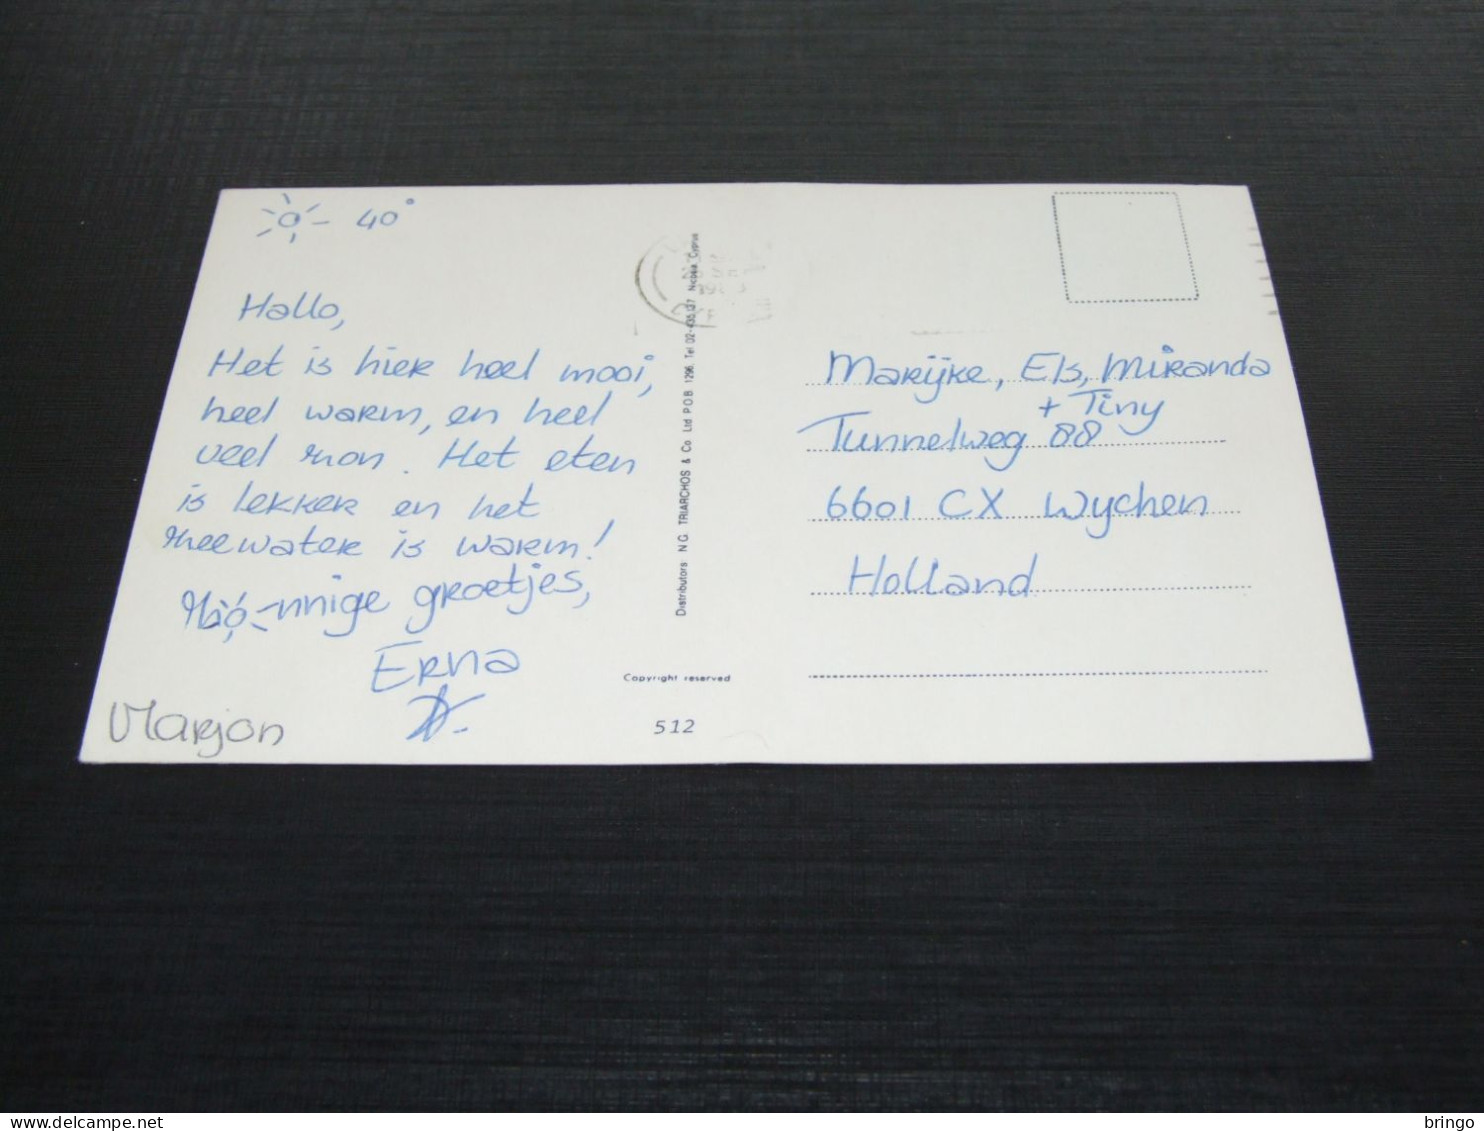 40°
Hallo,
Het is hier heel mooi,
heel warm, en heel
veel zon. Het eten
is lekker en het
zeewater is warm!
Zonnige groetjes,
Erna
Marjon
Distributors N.G. TRIARCHOS & Co Ltd P.O.B 1296. Tel 02-435127 Nicosia, Cyprus
Copyright reserved
512
Marijke, Els, Miranda
+ Tiny
Tunnelweg 88
6601 CX Wychen
Holland
bringo
delcampe.net